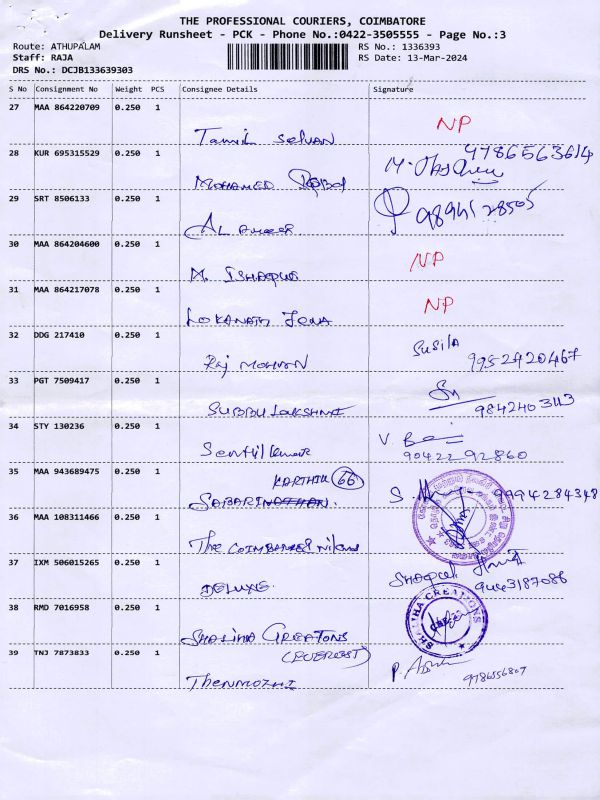 THE PROFESSIONAL COURIERS, COIMBATORE
Delivery Runsheet - PCK - Phone No.:0422-3505555 - Page No.:3
Route: ATHUPALAM RS No.: 1336393
Staff: RAJA RS Date: 13-Mar-2024
DRS No.: DCJB133639303
S No Consignment No Weight PCS Consignee Details Signature
27 MAA 864220709 0.250 1
Tamil Selvan NP
28 KUR 695315529 0.250 1
Mohamed
29 SRT 8506133 0.250 1
AL
30 MAA 864204600 0.250 1
M. Ishaque NP
31 MAA 864217078 0.250 1
Lokanath Jena NP
32 DDG 217410 0.250 1
Raj Mohan Susila 9952920467
33 PGT 7509417 0.250 1
Subbulakshmi
34 STY 130236 0.250 1
Senthilkumar 9042292860
35 MAA 943689475 0.250 1
Karthik 66
9994284348
36 MAA 108311466 0.250 1
The Coimbatore
37 IXM 506015265 0.250 1
Deluxe 9443187086
38 RMD 7016958 0.250 1
Shaliha Creations SHALIHA CREATIONS
(Everest)
39 TNJ 7873833 0.250 1
Thenmozhi 9786556807